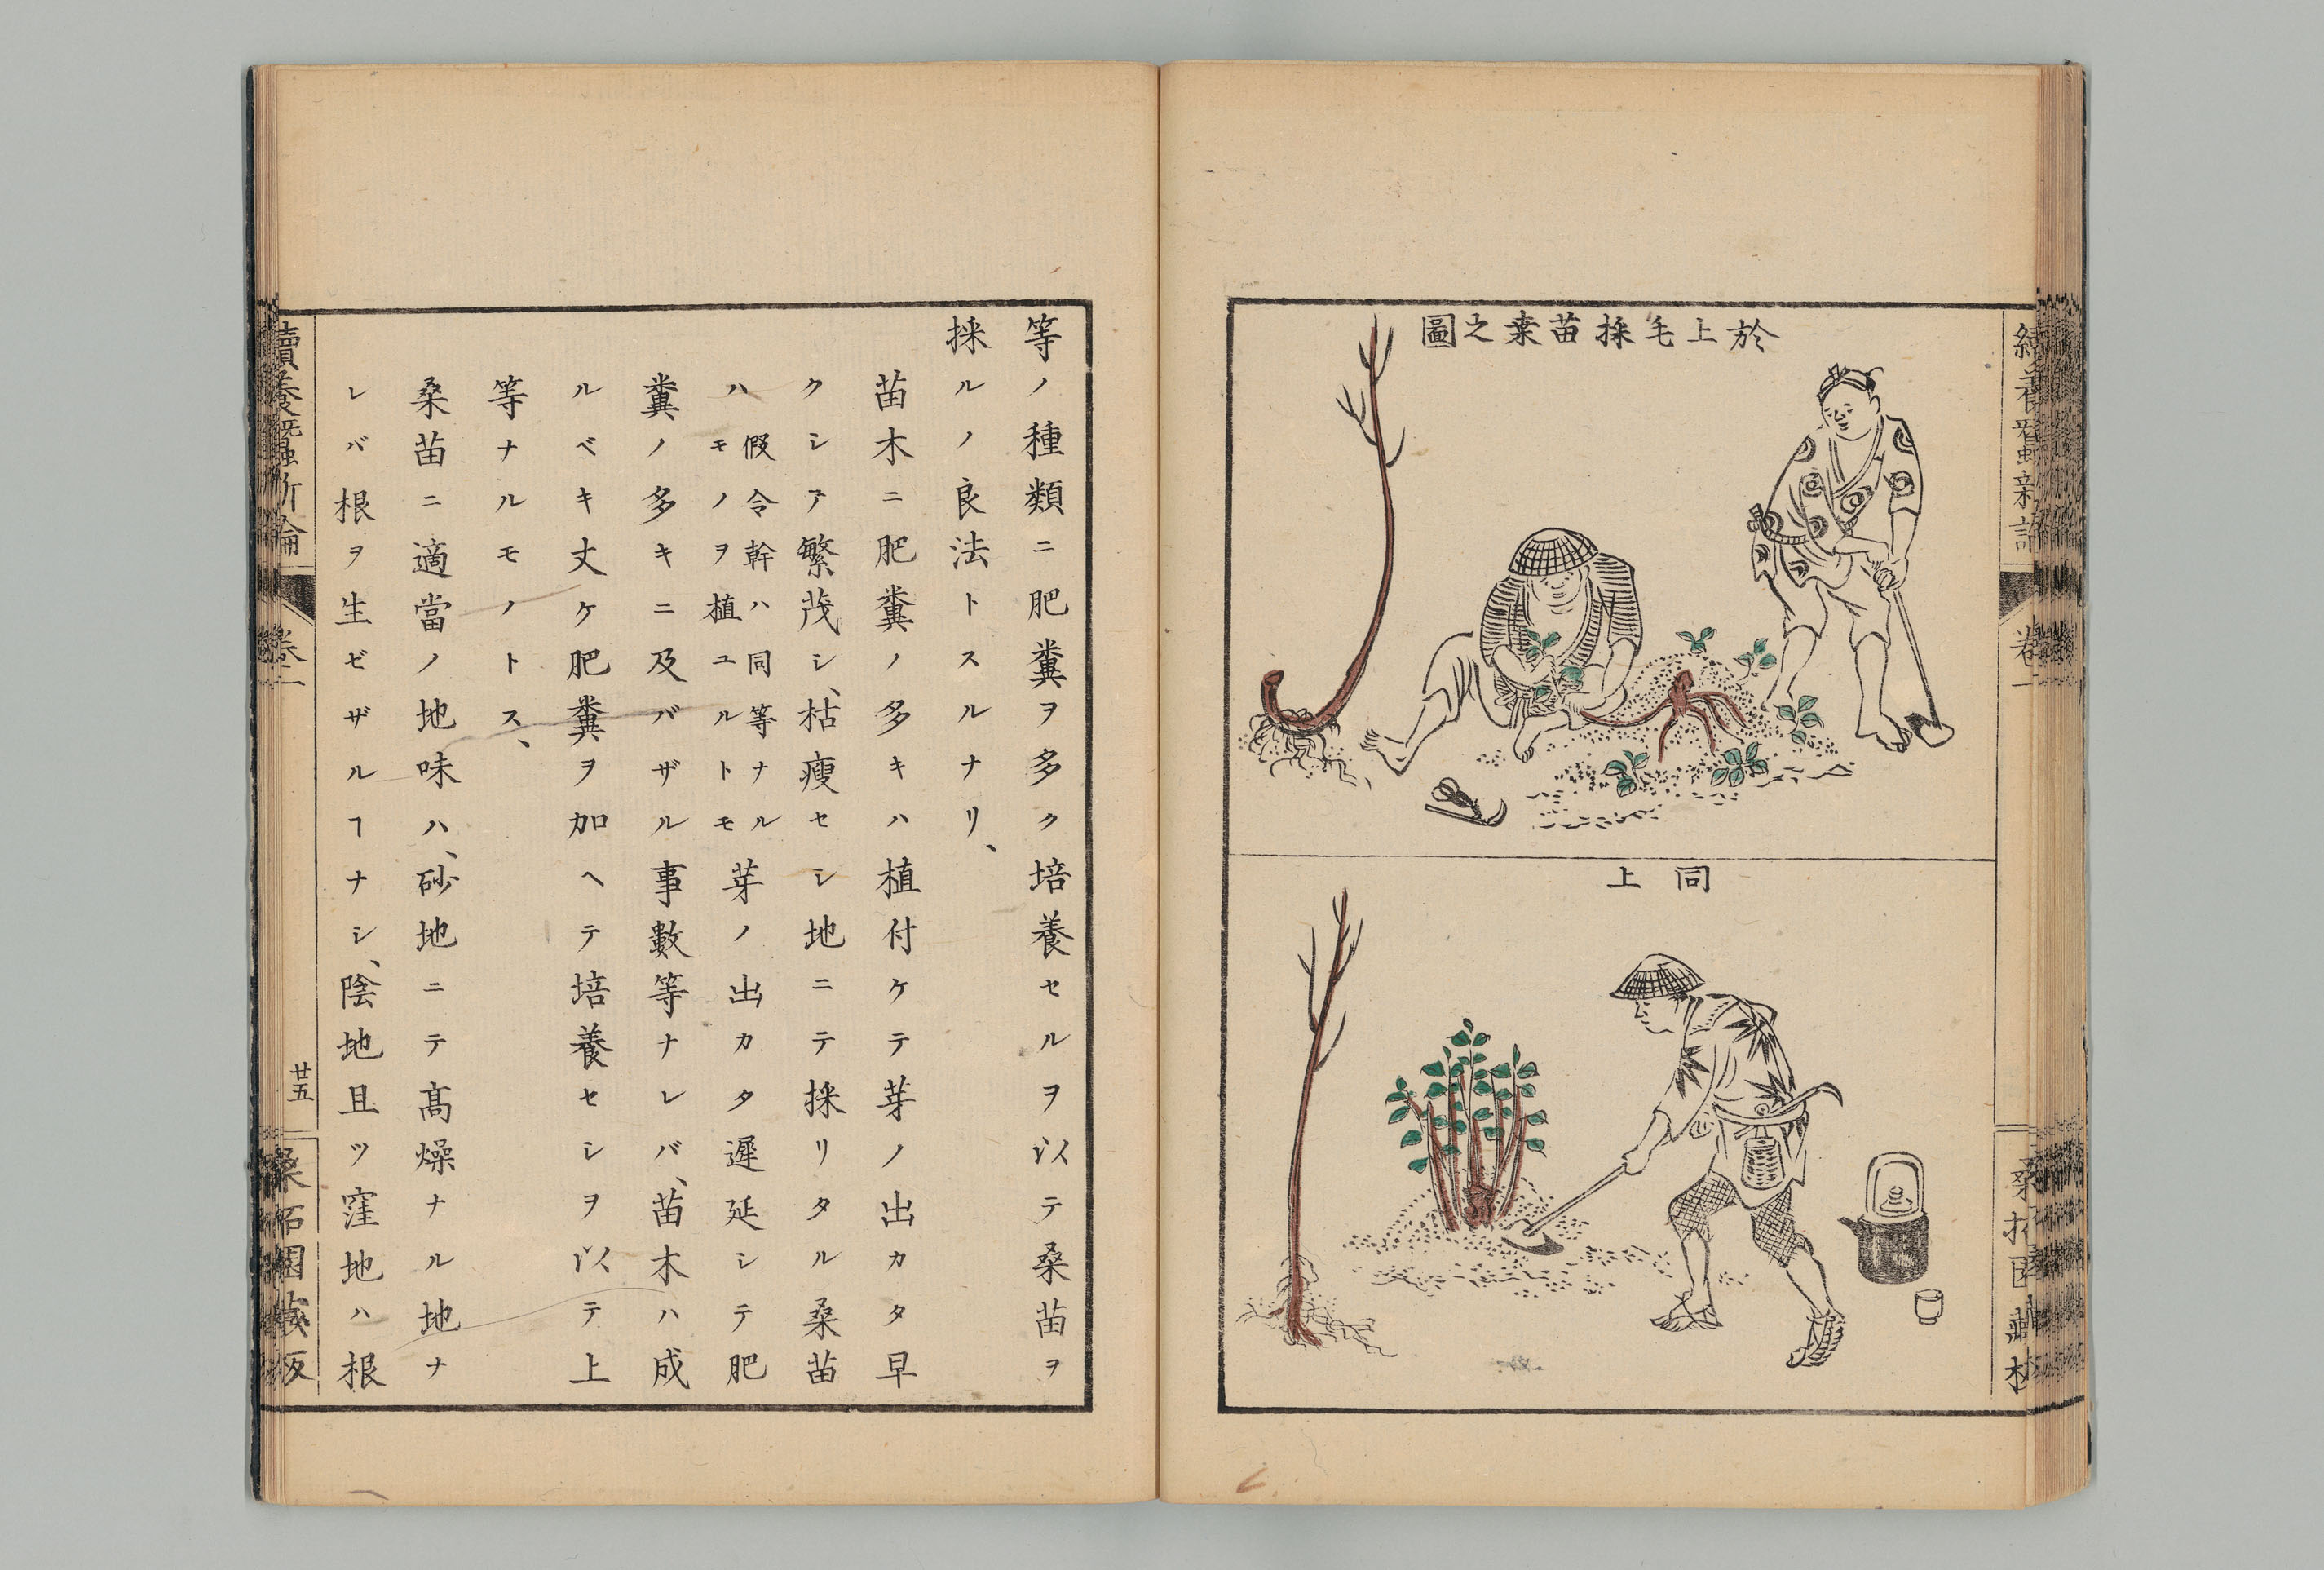 於上毛採苗桒之圖
同上
續養蠶新論
卷一
桑拓園藏板
等ノ種類ニ肥糞ヲ多ク培養セルヲ以テ桑苗ヲ
採ルノ良法トスルナリ、
苗木ニ肥糞ノ多キハ植付ケテ芽ノ出カタ早
クシテ繁茂シ、枯瘦セシ地ニテ採リタル桑苗
ハ假令幹ハ同等ナルモノヲ植ユルトモ芽ノ出カタ遲延シテ肥
糞ノ多キニ及バザル事數等ナレバ、苗木ハ成
ルベキ丈ケ肥糞ヲ加ヘテ培養セシヲ以テ上
等ナルモノトス、
桑苗ニ適當ノ地味ハ、砂地ニテ髙燥ナル地ナ
レバ根ヲ生ゼザルヿナシ、陰地且ツ窪地ハ根
續養蠶新論
卷一
廿五
桑拓園藏板